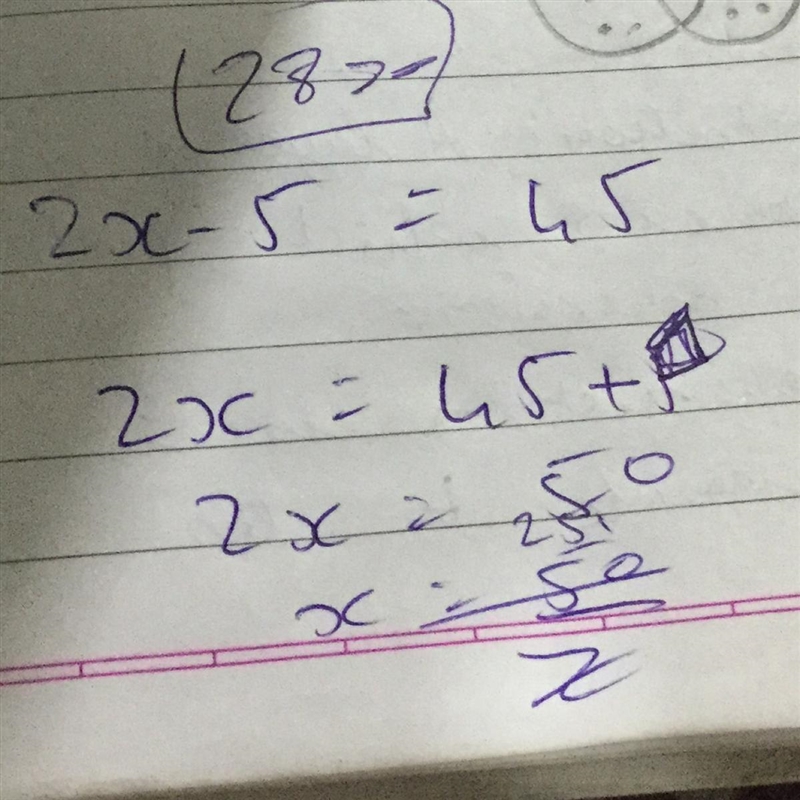 28
2x - 5 = 45
2x = 45 + 5
2x = 50
25
x = 50
2